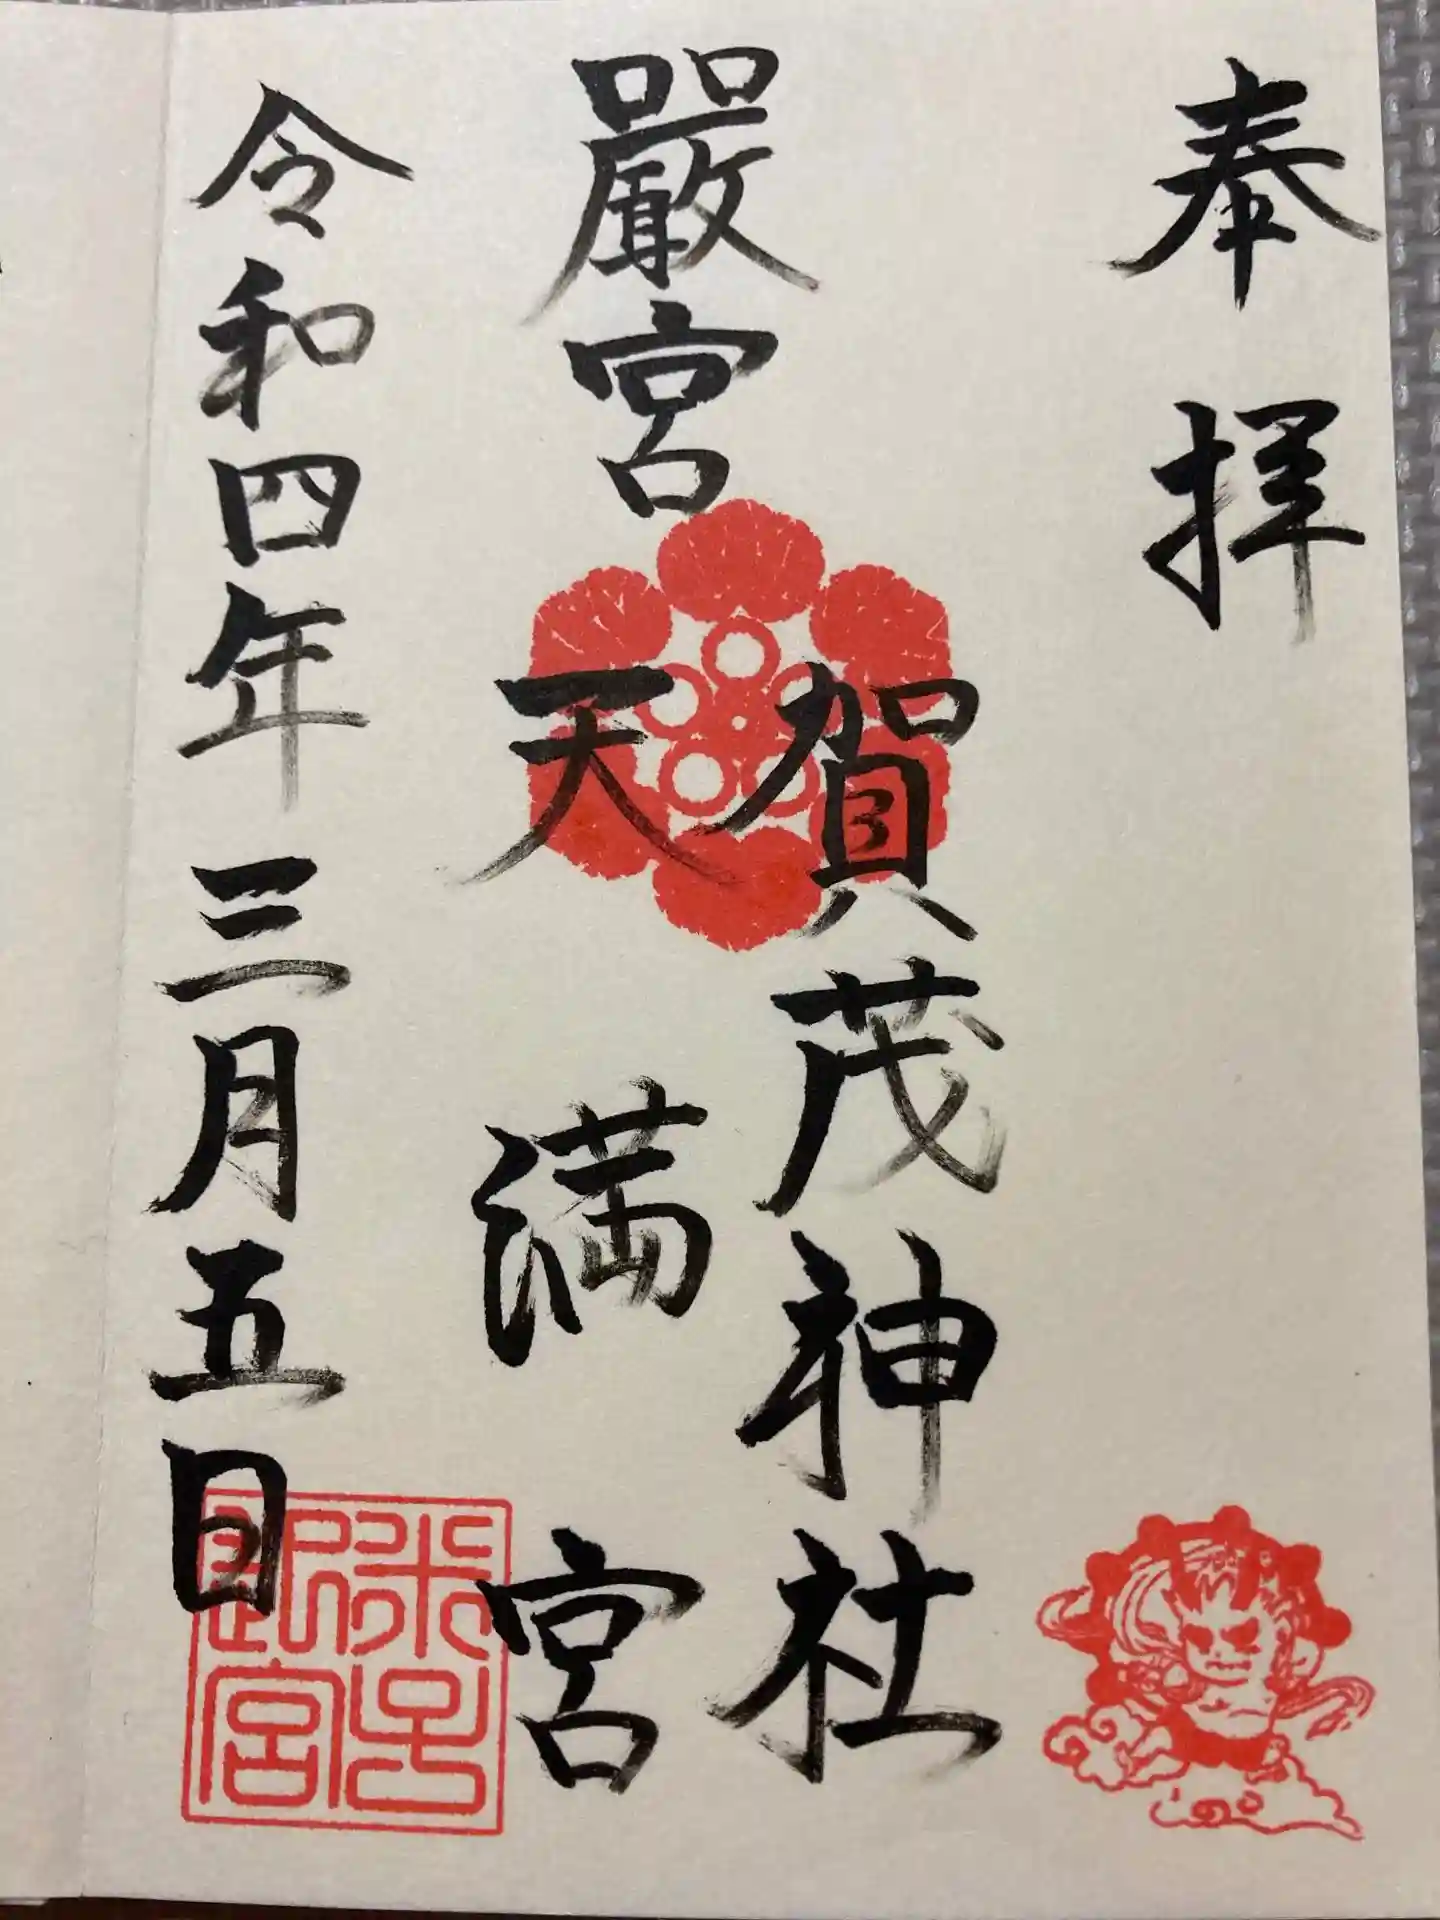 奉拝
嚴宮
賀茂神社
天満宮
令和四年三月五日